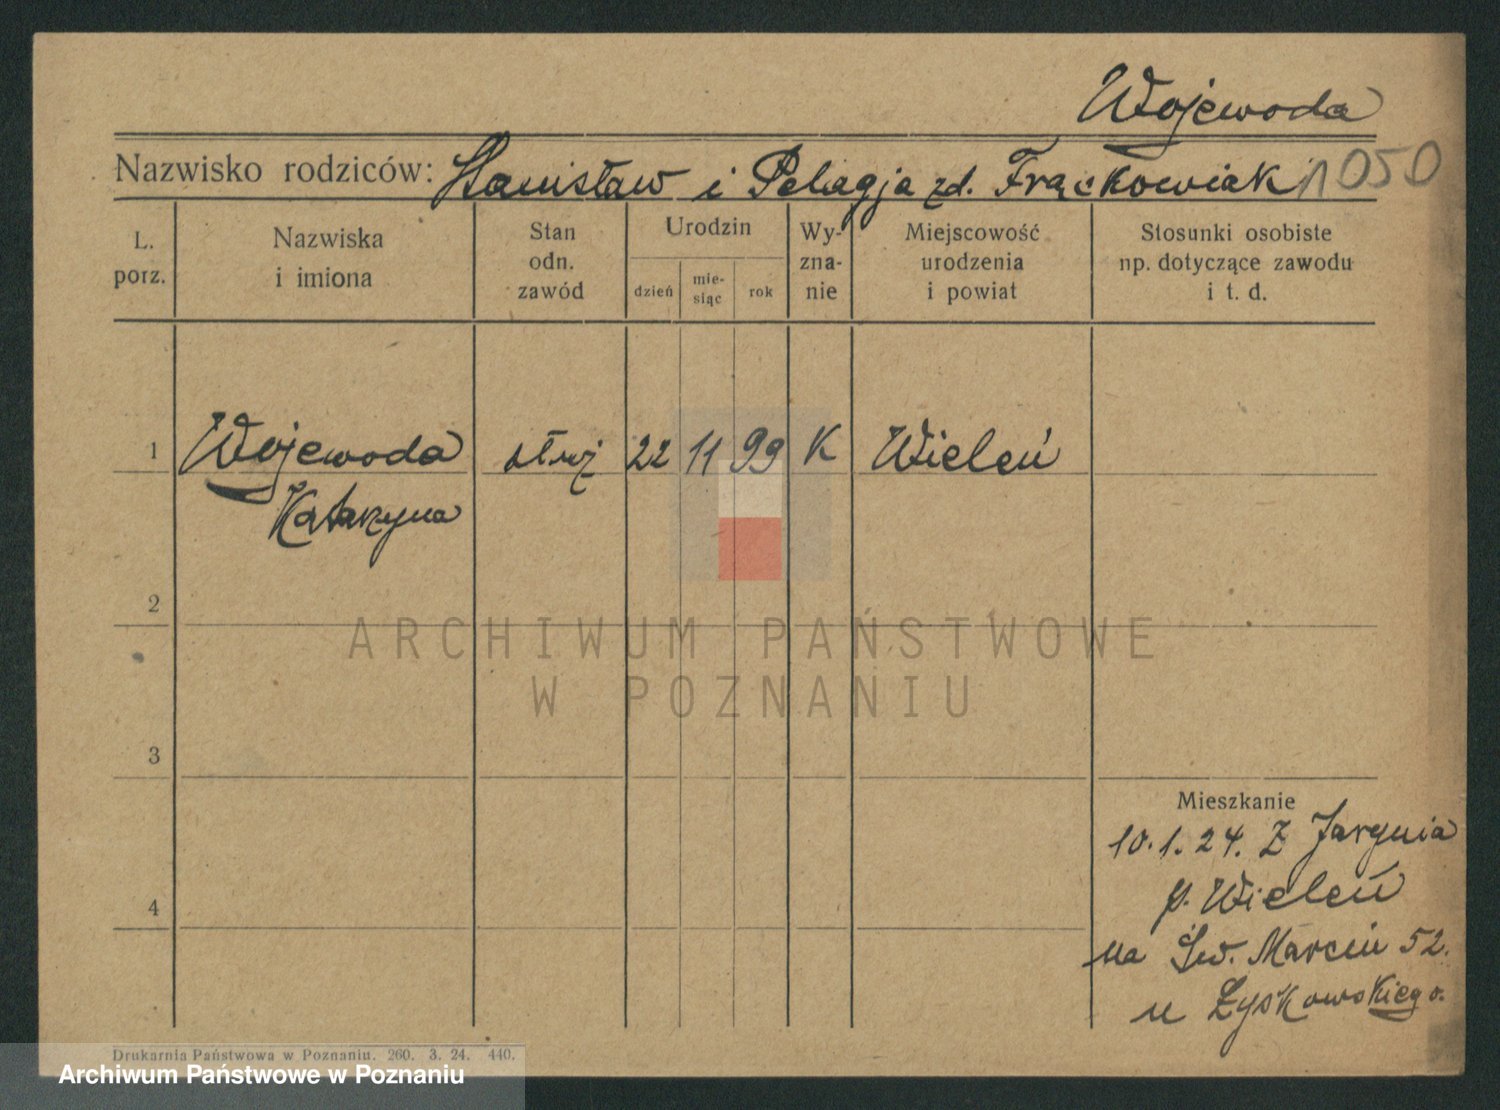 Wojewoda
Nazwisko rodziców: Stanisław i Pelagja zd. Frąckowiak 1050
L. porz.
Nazwiska i imiona
Stan odn. zawód
Urodzin
dzień
mie-siąc
rok
Wy-zna-nie
Miejscowość urodzenia i powiat
Stosunki osobiste np. dotyczące zawodu i t. d.
1 Wojewoda służ 22 11 99 K Wieleń
Katarzyna
2
ARCHIWUM PAŃSTWOWE
W POZNANIU
3
Mieszkanie
10.1.24. Z
4
p. Wieleń
na Św. Marcin 52.
u Zyskowskiego.
Drukarnia Państwowa w Poznaniu. 260. 3. 24. 440.
Archiwum Państwowe w Poznaniu